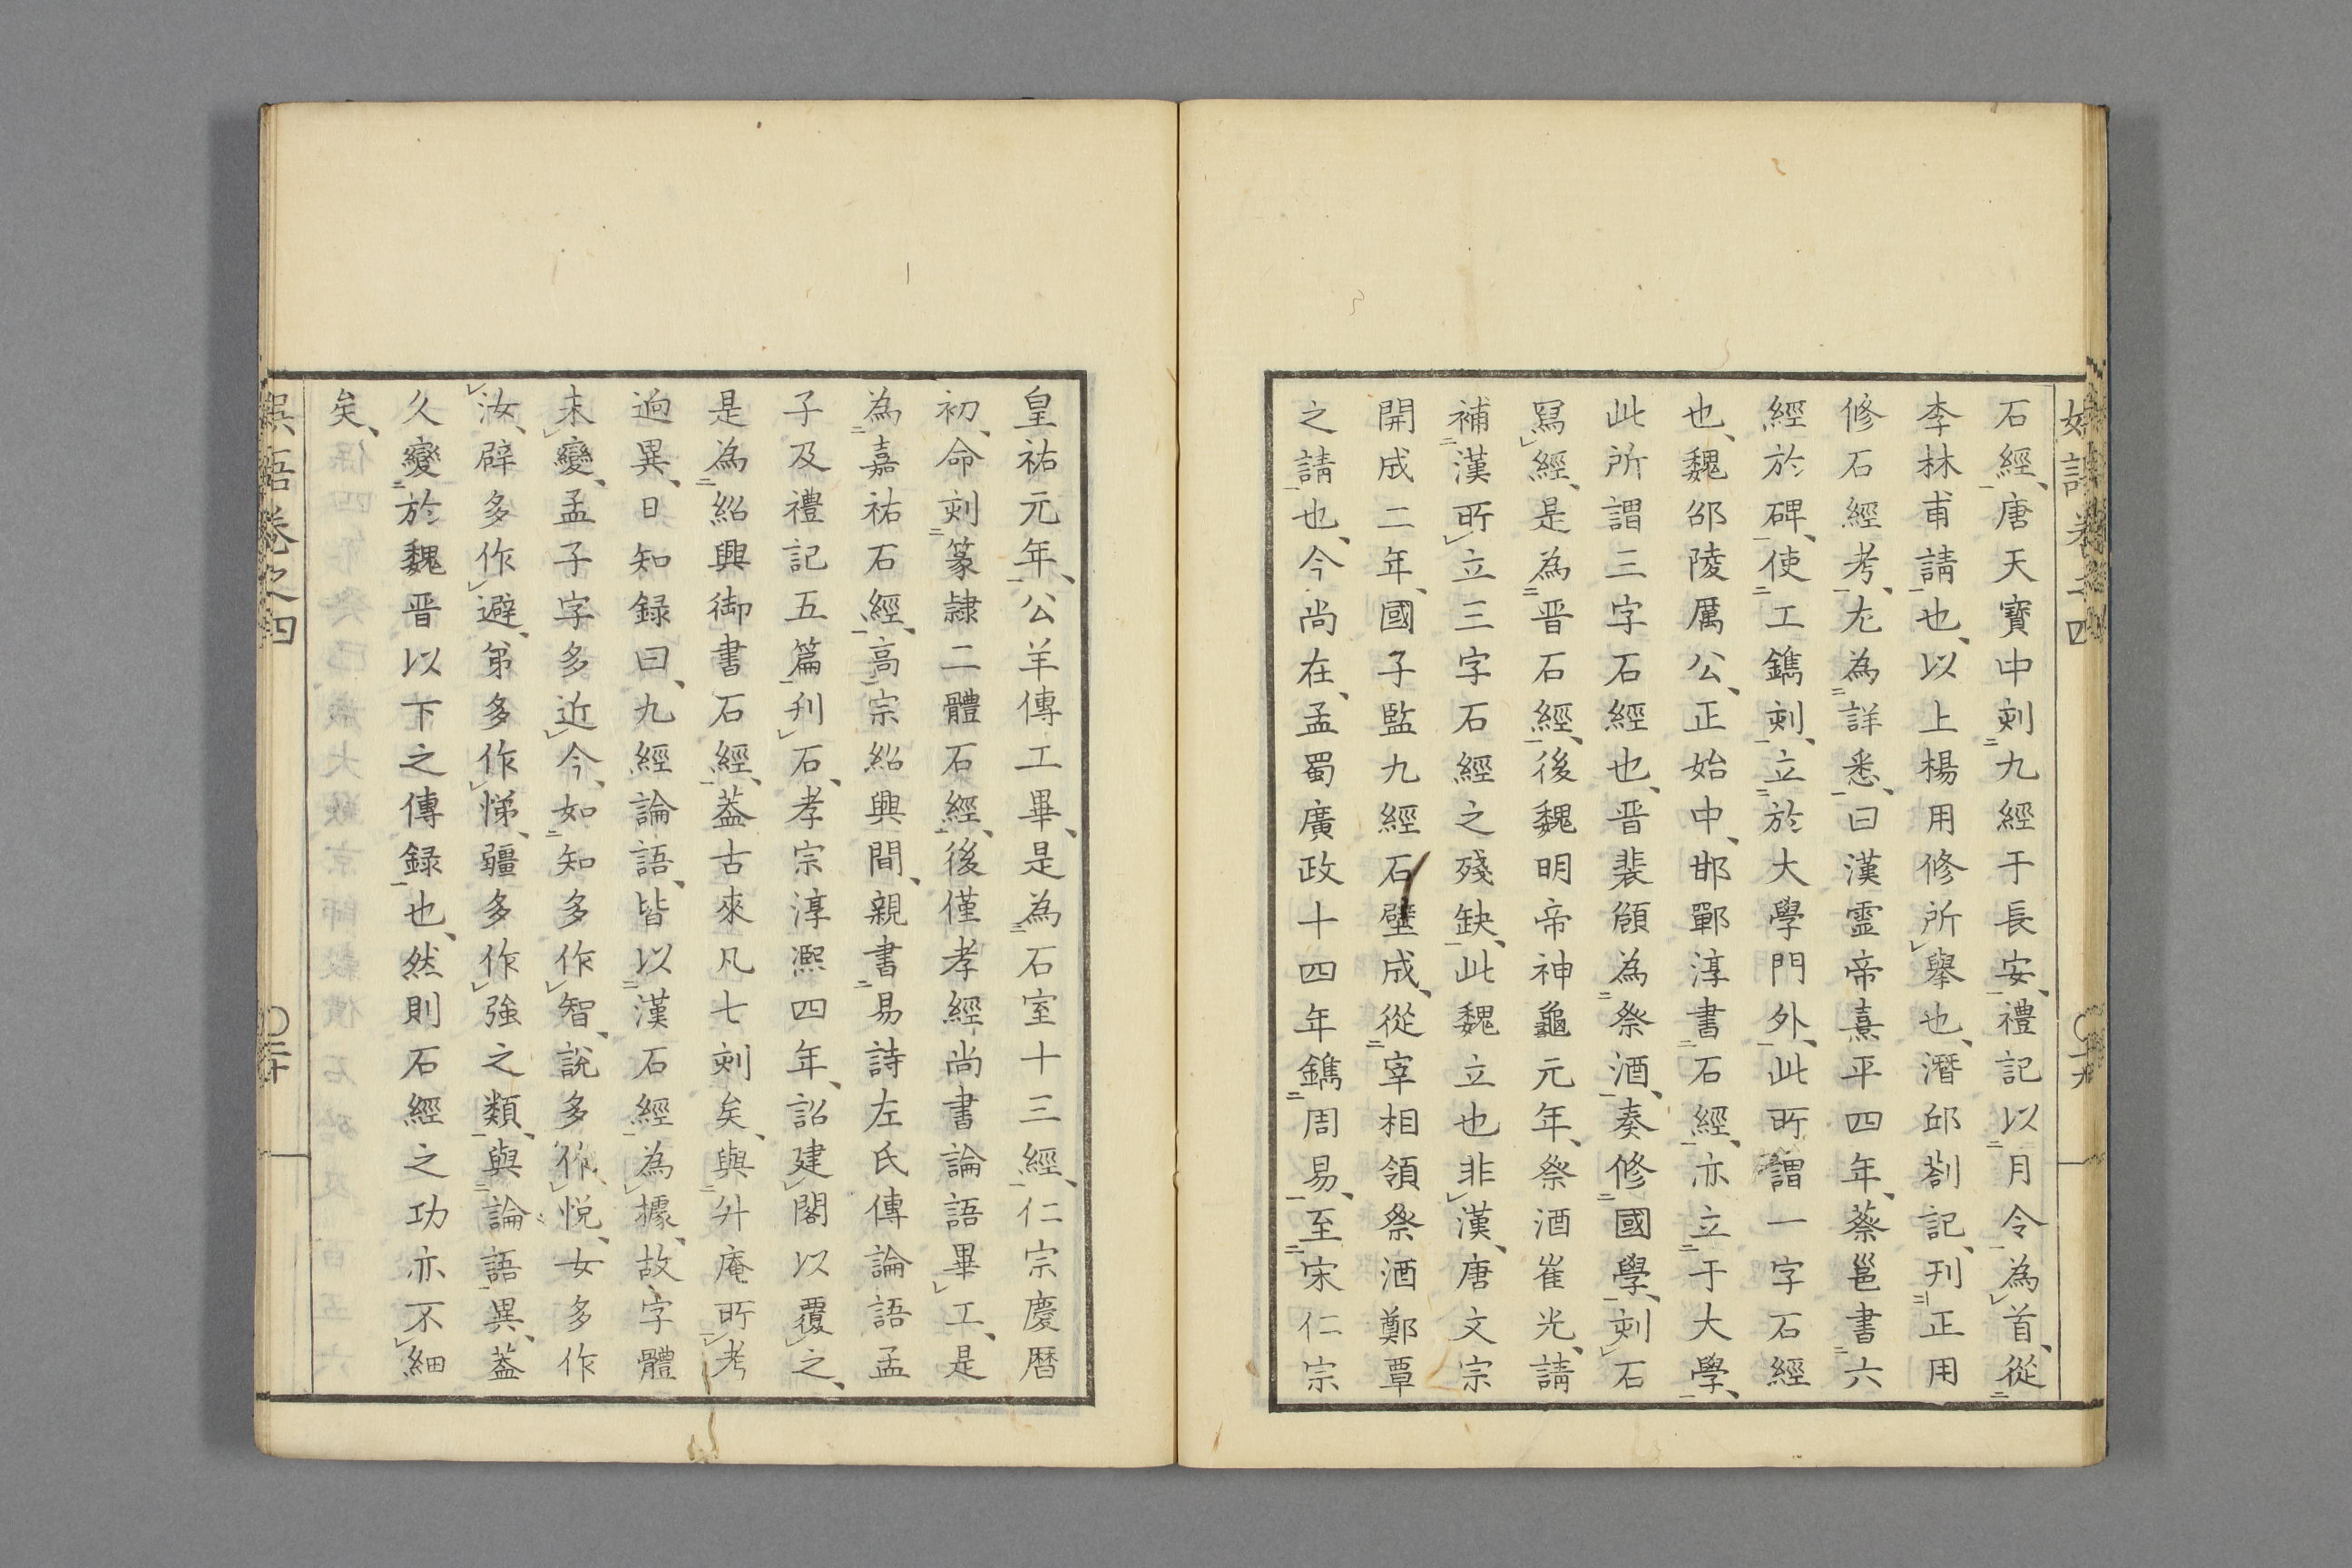 石經、唐天寶中刻九經于長安、禮記以月令為首、從
李林甫請也、以上楊用修所擧也、潛邱劄記、刊正用
修石經考、尤為詳悉、曰漢靈帝熹平四年、蔡邕書六
經於碑、使工鐫刻、立於大學門外、此所謂一字石經
也、魏邵陵厲公、正始中、邯鄲淳書石經、亦立于大學、
此所謂三字石經也、晋裴頠為祭酒、奏修國學、刻石
冩經、是為晋石經、後魏明帝神龜元年、祭酒崔光、請
補漢所立三字石經之殘缺、此魏立也非漢、唐文宗
開成二年、國子監九經石壁成、從宰相領祭酒鄭覃
之請也、今尚在、孟蜀廣政十四年鐫周易、至宋仁宗
皇祐元年、公羊傳工畢、是為石室十三經、仁宗慶暦
初、命刻篆隷二體石經、後僅孝經尚書論語畢工、是
為嘉祐石經、高宗紹興間、親書易詩左氏傳論語孟
子及禮記五篇刋石、孝宗淳凞四年、詔建閣以覆之、
是為紹興御書石經、葢古來凡七刻矣、與升庵所考
逈異、日知録曰、九經論語、皆以漢石經為據、故字體
未變、孟子字多近今、如知多作智、說多作悦、女多作
汝、辟多作避、弟多作悌、疆多作強之類、與論語異、葢
久變於魏晋以下之傳録也、然則石經之功亦不細
矣、